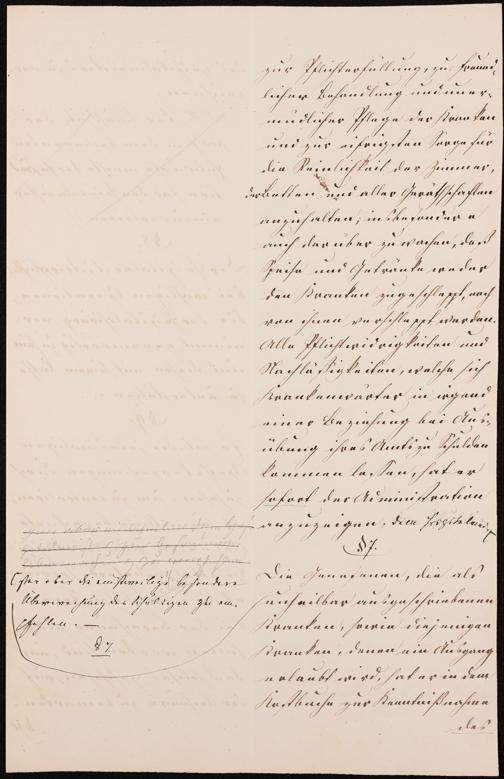 zur Pflichterfüllung, zu freund-
licher Behandlung und uner-
müdlicher Pflege der Kranken
und zur eifrigsten Sorge für
die Reinlichkeit der Zimmer,
der Betten und aller Geräthschaften
anzuhalten; insbesondere
auch darüber zu wachen, daß
Speise und Getränke weder
den Kranken zugeschleppt, noch
von ihnen verschleppt werden.
Alle Pflichtwidrigkeiten und
Nachläßigkeiten, welche sich
Krankenwärter in irgend
einer Beziehung bei Aus-
übung ihres Amts zu Schulden
kommen lassen, hat er
sofort der Administration
anzuzeigen, dem
§ 7.
Die Genesenen, die als
unheilbar ausgeschriebenen
Kranken, sowie diejenigen
Kranken, denen ein Ausgang
erlaubt wird, hat er in dem
Kostbuche zur Kenntnißnahme
des
aber die einstweilige besondere
Überwachung des Schuldigen zu em-
pfehlen. —
§ 7